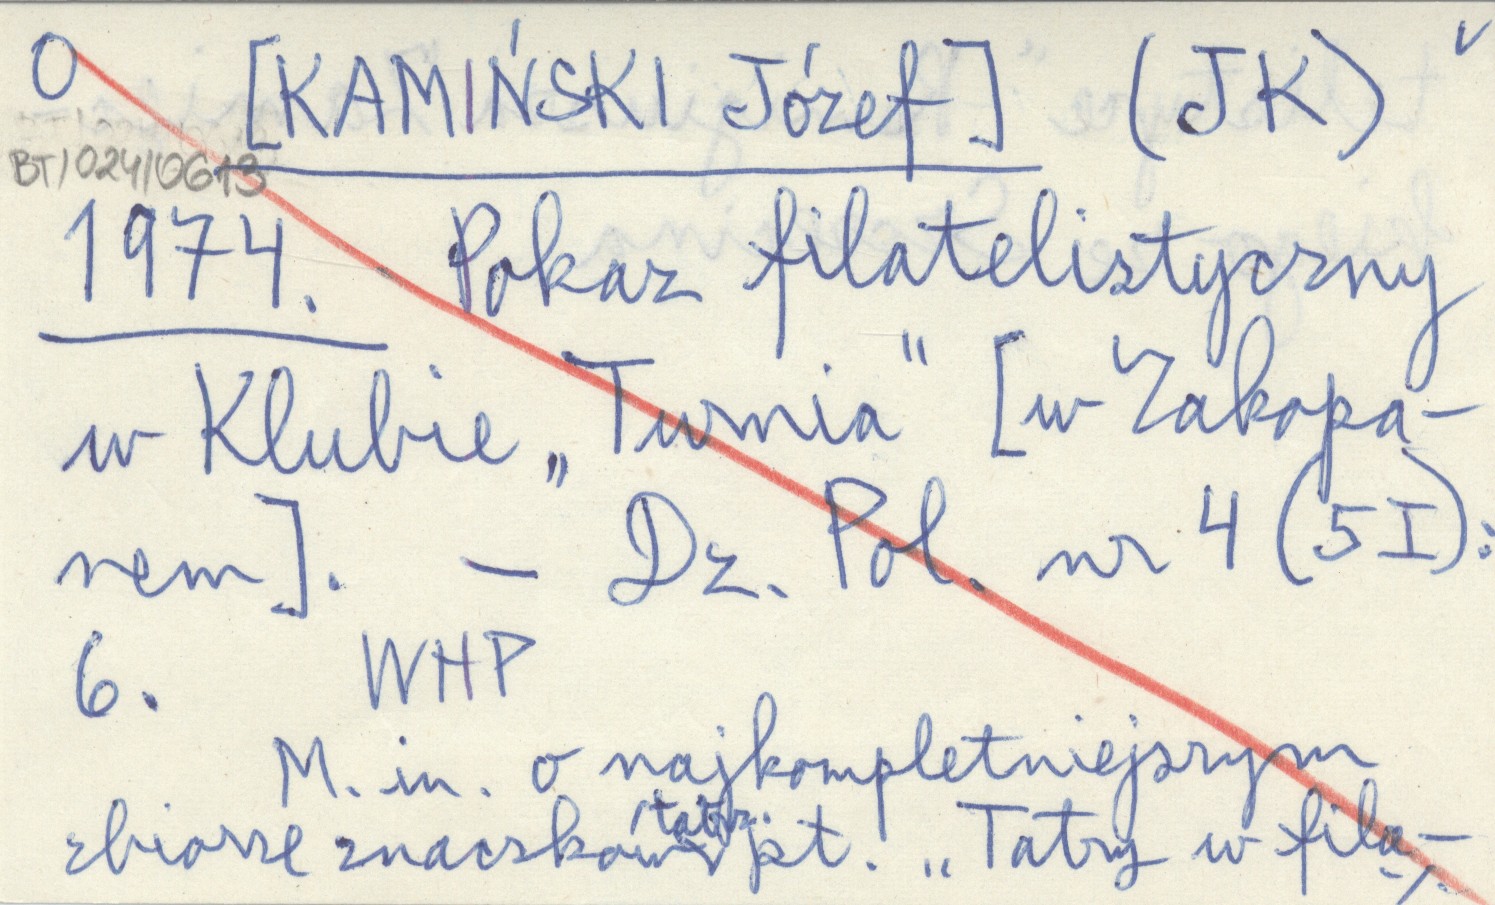 O [KAMIŃSKI Józef] (JK) v
BT/024/0613
1974. Pokaz filatelistyczny
w Klubie „Turnia" [w Zakopa-
nem]. — Dz. Pol. nr 4 (5 I):
6. WHP
M. in. o najkompletniejszym
zbiorze znaczków tatrz. pt. „Tatry w fila-